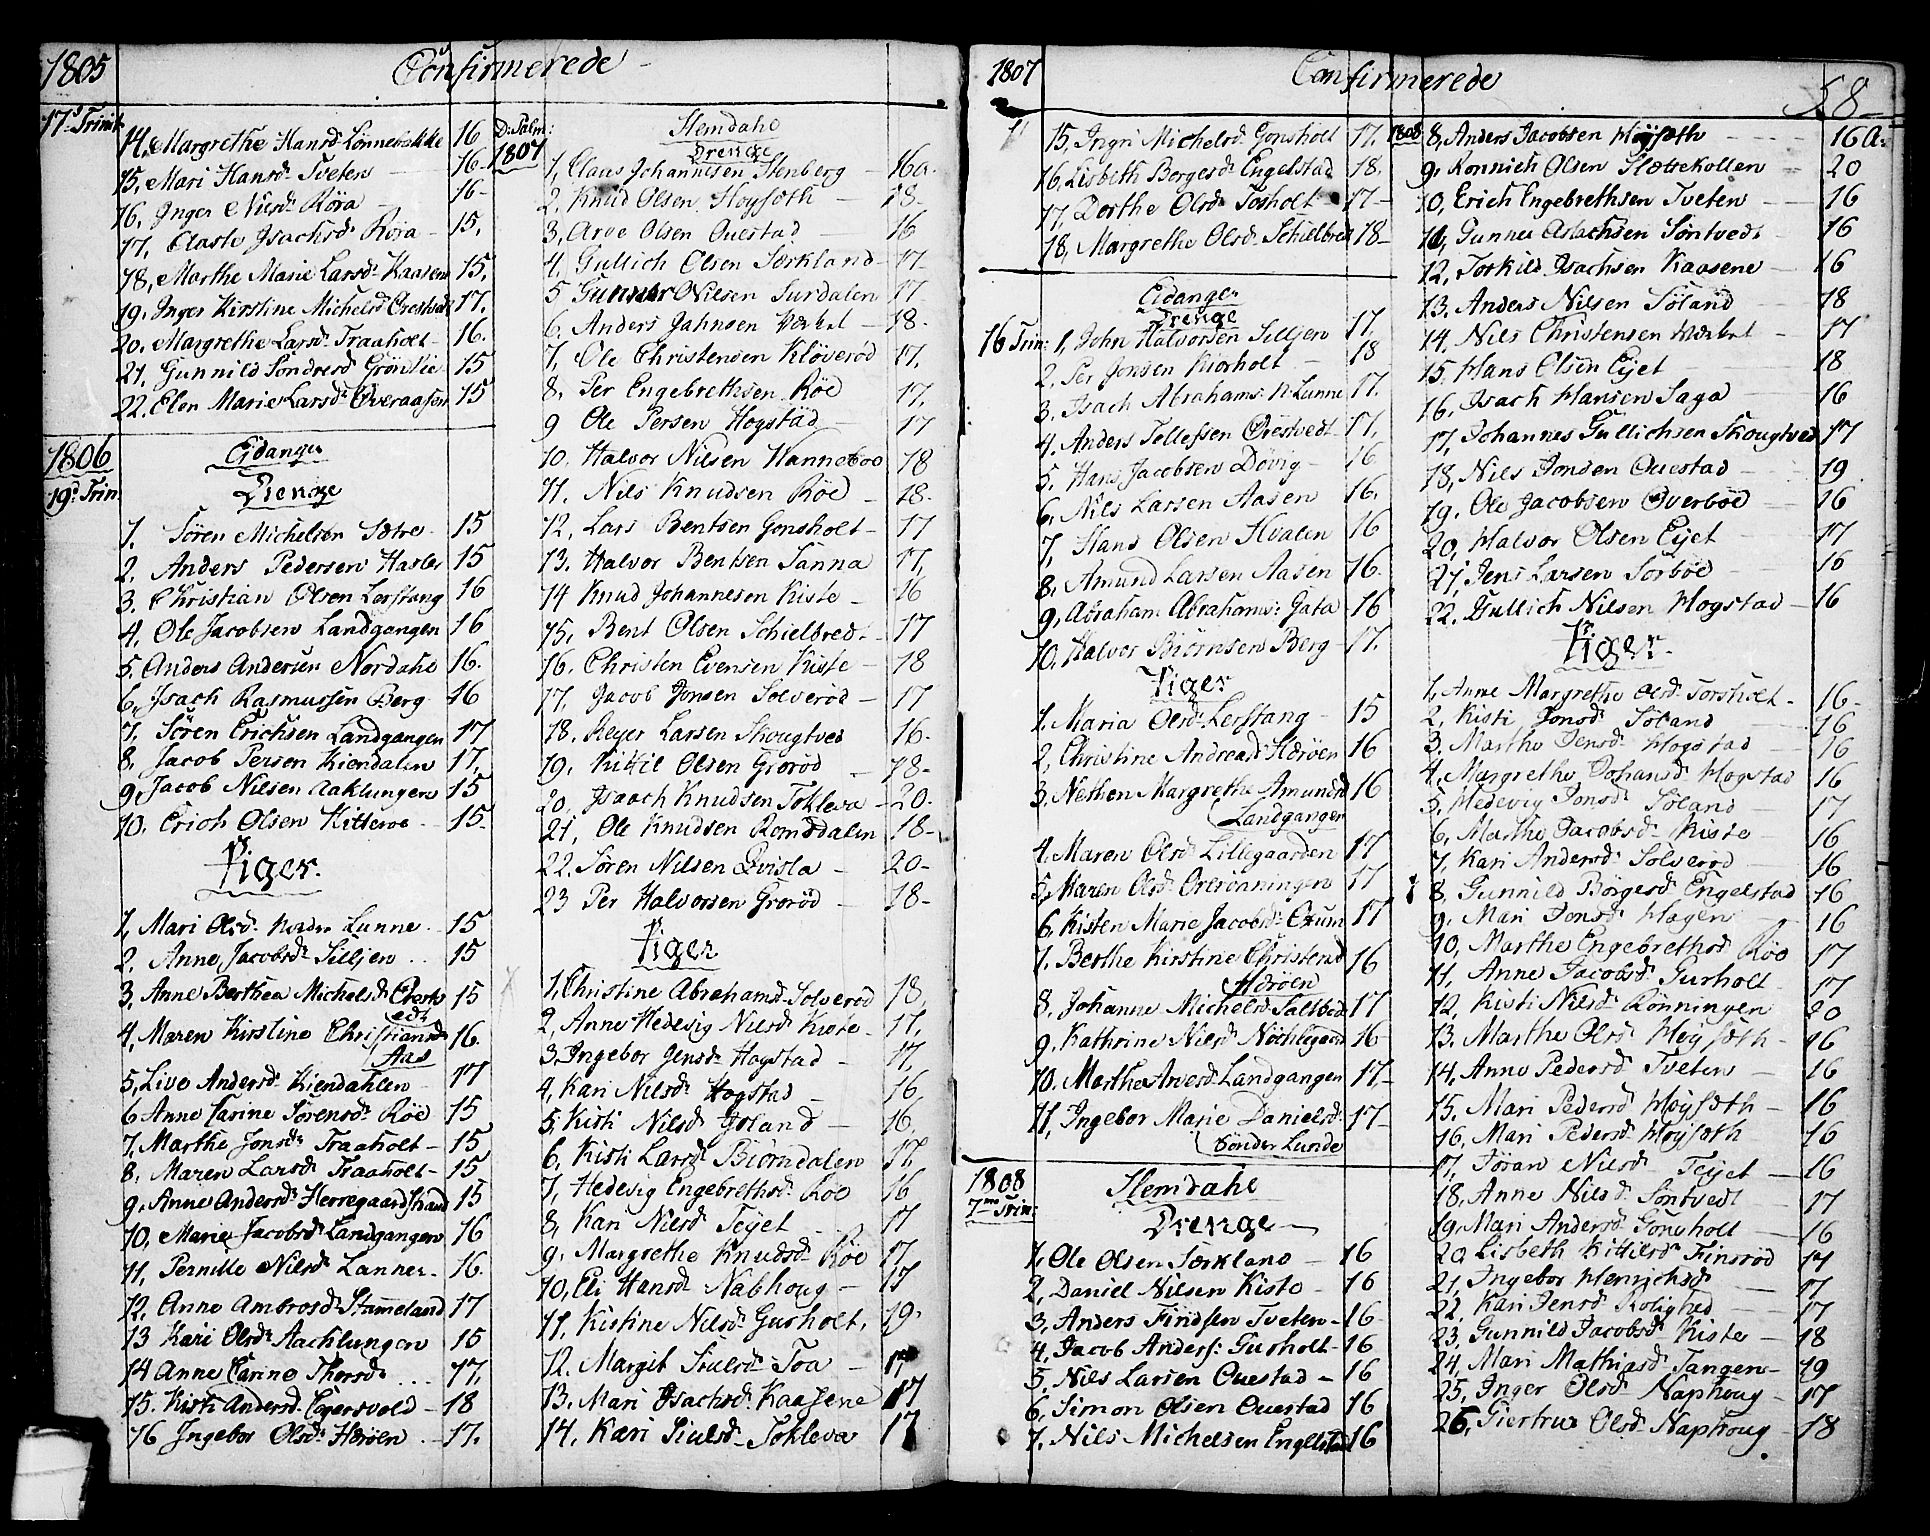 1805 Confirmerede
17d. Trinit.
14, Margrethe Hansd. Lønnebakke 16
15, Mari Hansd. Tveten 16-
16, Inger Nilsd. Röra 16-
17, Aaste Isachsd. Röra 15,
18, Marthe Marie Larsd. Kaasene 15,
19, Inger Kirstine Michelsd. Ørestvedt 17.
20. Margrethe Larsd. Traaholt 16.
21. Gunnild Sondresd. Grönlie 15
22. Elen Marie Larsd. Øveraasen 15
1806
19d. Trin.
Eidanger
Drenge
1. Sören Michelsen Sætre 15
2. Anders Pedersen Hasler 15
3. Christian Olsen Lerstang 16
4. Ole Jacobsen Landgangen 16
5. Anders Andersen Nordahl 16.
6, Isach Rasmussen Berg 16
7, Sören Erichsen Landgangen 17
8, Jacob Persen Kiendalen 17,
9, Jacob Nilsen Aaklungen 15
10. Erich Olsen Kitteröe 15-
Piger.
1, Mari Olsd. Nordre Lunne 15
2. Anne Jacobsd. Silljen 15
3, Anne Berthea Michelsd. Ørestv
edt 15
4, Maren Kirstine Christiansd.
Aas 16.
5, Live Andersd. Kiendahlen 17
6 Anne Karine Sörensd. Röe 15
7, Marthe Jonsd. Traaholt 15
8, Maren Larsd. Traaholt 15
9, Anne Andersd. Herregaardstrand 15
10, Marie Jacobsd. Landgangen 16
11, Pernille Nilsd. Lanner 16.
12, Anne Ambrosd. Stammeland 17
13 Kari Olsd. Aachlungen 15
14 Anne Carine Thorsd. 17.
15. Kisti Andersd. Egersvold 18
16 Ingebor Olsd. Herøen 17.
D: Palm:
1807
Slemdahl
Drenge
1, Claus Johannesen Stenberg 16 a.
2. Knud Olsen Høysæth 18-
3, Arve Olsen Ouestad 16
4, Gullich Olsen Særkland 17
5 Gunner Nilsen Surdalen 17
6. Anders Jahnsen Værket 18.
7, Ole Christensen Kløverød 17,
8, Per Engebrethsen Röe 17,
9 Ole Persen Hogstad 17
10. Halvor Nilsen Hanneboe 18
11. Nils Knudsen Röe 18.
12, Lars Bentsen Gonsholt 17
13. Halvor Bentsen Tanna 17,
14 Knud Johannesen Kiste 16
15, Bent Olsen Schielbredt 17
16. Christen Evensen Kiste 18
17, Jacob Jonsen Solverød 17
18. Reyer Larsen Skougtved 16.
19. Kittil Olsen Grorød 18-
20, Isaach Knudsen Tokleva 20.
21, Ole Knudsen Romsdalen 18-
22. Sören Nilsen Qvisla 20-
23 Per Halvorsen Grorød 18-
Piger
1, Christine Abrahamsd. Solverød 18,
2, Anne Hedevig Nilsd. Kiste 17,
3, Ingebor Jensd. Hogstad 17,
4, Kari Nilsd. Hogstad 16,
5, Kisti Nilsd. Joland 16,
6, Kisti Larsd. Biörndalen 17,
7, Hedevig Engebrethsd. Röe 16
8, Kari Nilsd. Teyet 17
9, Margrethe Knudsd. Röe 17,
10, Eli Hansd. Nabhoug 17
11, Kistine Nilsd. Gurholt, 19,
12. Margit Truelsd. Toa 17
13. Mari Isachsd. Kaasene 17
14, Kari Siulsd. Tokleva 17
1807 Confirmerede 58
15, Ingri Michelsd. Gonsholt 17.
16, Lisbeth Borgesd. Engelstad 18.
17, Dorthe Olsd. Tosholt 17-
18, Margrethe Olsd. Schielbred 18-
Eidanger
Drenge
16 Trin:
1, John Halvorsen Silljen 17,
2, Per Jonsen Kiorholt 18
3. Isach Abrahams: N. Lunne 17.
4. Anders Tollefsen Ørestvedt 17,
5. Hans Jacobsen Døvig 16
6, Nils Larsen Aasen 16.
7, Hans Olsen Hvalen 16
8, Amund Larsen Aasen 16.
9, Abraham Abrahams: Gata 16
10, Halvor Biörnsen Berg 17.
Piger
1. Maria Olsd. Lerstang 15
2, Christine Andreasd. Herøen 16
3, Nethen Margrethe Amundsd.
Landgangen 16
4, Maren Olsd. Lillegaarden 17
5, Maren Olsd. Overönningen 17
6, Kisten Marie Jacobsd. Oxum 17
7. Berthe Kirstine Christensd.
Herøen 16
8, Johanne Michelsd. Saltbod 17
9, Kathrine Nilsd. Nöchlegaard 16
10. Marthe Arvesd. Landgangen 17-
11, Ingebor Marie Danielsd.
Sönder Lunde 17-
1808
7me Trin:
Slemdahl
Drenge
1, Ole Olsen Særkland 16
2, Daniel Nilsen Kiste 16
3, Anders Findsen Tveten 16
4, Jacob Anders: Gurholt 16
5, Nils Larsen Ouestad 16
6, Simon Olsen Ouestad 16
7, Nils Michelsen Engelstad 16
1808
8, Anders Jacobsen Høysæth 16 A.
9, Ronnich Olsen Slettekollen 20
10, Erich Engebrethsen Tveten 16
11, Gunner Isachsen Söntvedt 16
12, Torkild Isachsen Kaasene 16
13. Anders Nilsen Föland 18
14. Nils Christensen Værket 17
15, Hans Olsen Eyet 18
16, Isach Hansen Saga 16
17, Johannes Gullichsen Skougtved 17
18, Nils Jonsen Ouestad 19
19, Ole Jacobsen Overböe 16
20, Halvor Olsen Eyet 17
21, Jens Larsen Sorböe 16
22, Gullich Nilsen Hogstad 16
Piger.
1, Anne Margrethe Olsd. Torsholt 16-
2, Kisti Jonsd. Föland 16
3. Marthe Jensd. Hogstad 16
4. Margrethe Johansd. Hogstad 16
5, Hedevig Jonsd. Föland 17
6, Marthe Jacobsd. Kiste 16
7, Kari Andersd. Solverød 16
8, Gunnild Börgesd. Engelstad 16
9, Mari Jonsd. Hagen 16
10, Marthe Engebrethsd. Röe 17
11, Anne Jacobsd. Gurholt 17
12, Kisti Nilsd. Rönningen 20
13. Marthe Olsd. Høysæth 16
14, Anne Pedersd. Tveten 16
15, Mari Pedersd. Høysæth 16
16, Mari Pedersd. Høysæth 16
17, Jöran Nilsd. Teyet 16
18, Anne Nilsd. Söntvedt 17
19, Mari Andersd. Gonsholt 16
20 Lisbeth Kittilsd. Finsrød 17
21, Ingebor Henrichsd. 17
22, Kari Jensd. Rolighed 17
23, Gunnild Jacobsd. Kiste 18
24, Mari Mathiasd. Tangen 19
25, Inger Olsd. Naphoug 17
26, Giertrue Olsd. Naphoug 18